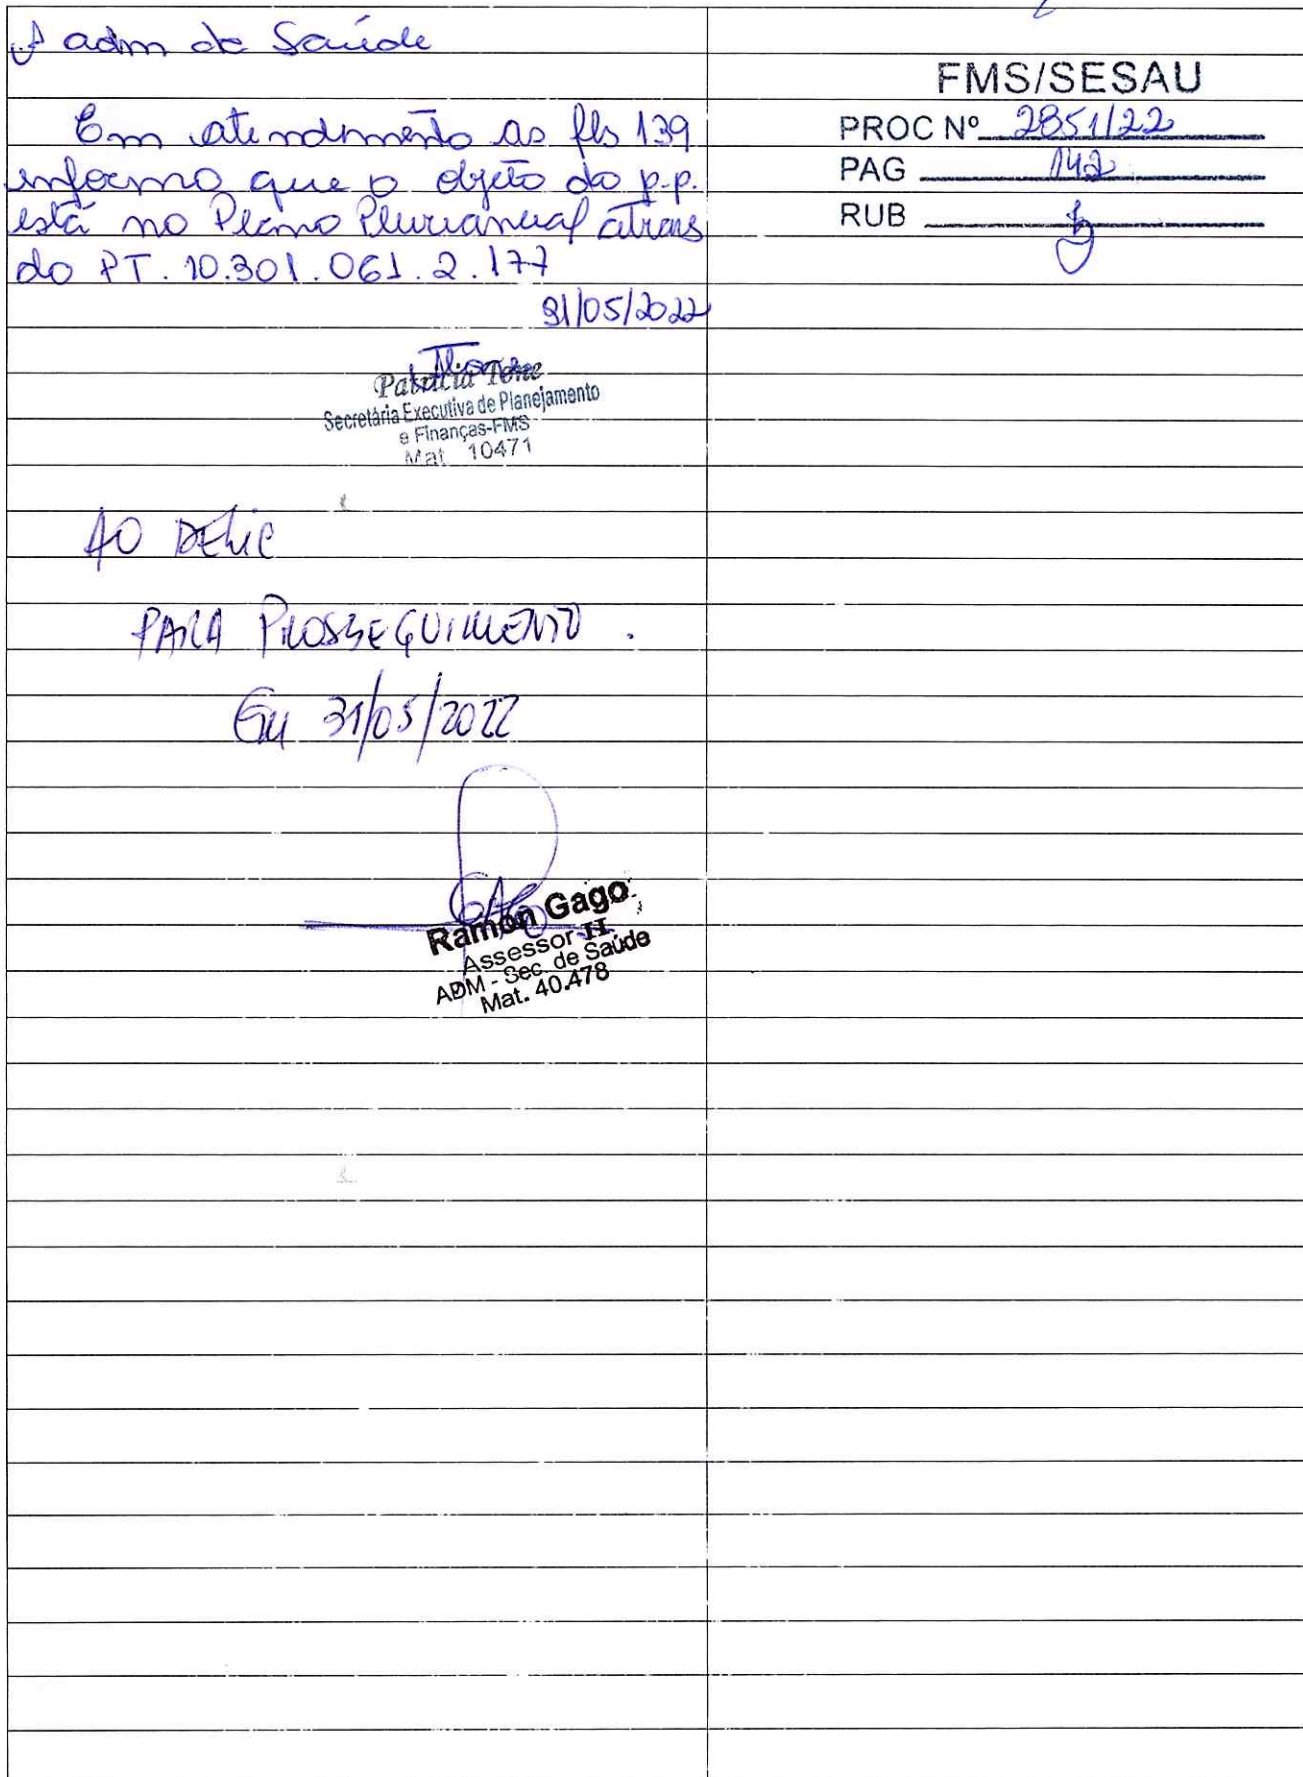 adm de Saúde
Em atendimento as fls 139
informo que o objeto do p.p.
está no Plano Plurianual atraves
do PT. 10.301.061.2.177
31/05/2022
Patricia Tene
Secretária Executiva de Planejamento
e Finanças-FMS
Mat 10471
AO DELIC
PARA PROSSEGUIMENTO.
Em 31/05/2022
Ramon Gago
Assessor II
ADM - Sec. de Saúde
Mat. 40.478
FMS/SESAU
PROC Nº 2851/22
PAG 142
RUB